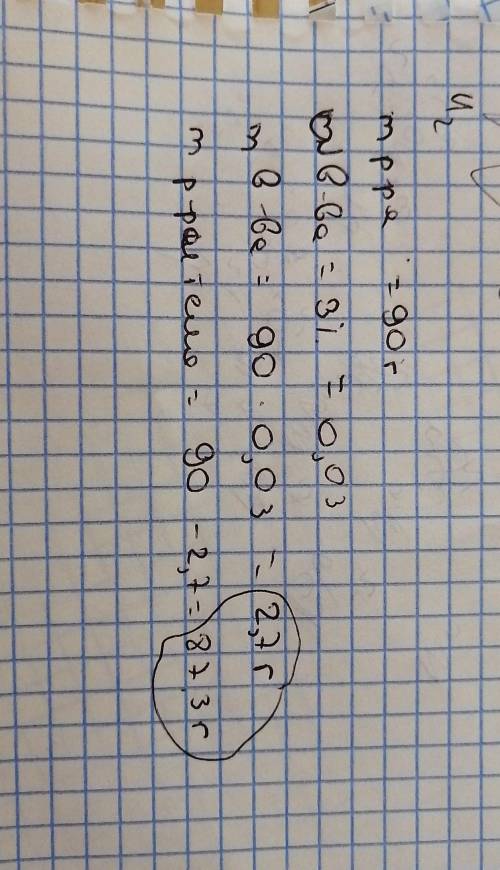 ч2
m р ра = 90 г
ω в-ва = 3% = 0,03
m в-ва = 90 · 0,03 = 2,7 г
m р-рителю = 90 - 2,7 = 87,3 г